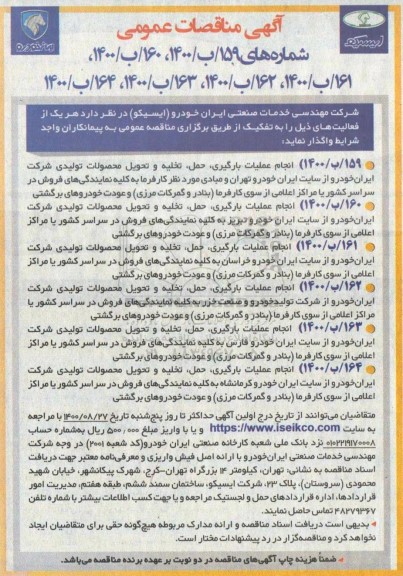 ایسیکو
ایران خودرو
آگهی مناقصات عمومی
شماره‌های ۱۵۹/ب/۱۴۰۰، ۱۶۰/ب/۱۴۰۰،
۱۶۱/ب/۱۴۰۰، ۱۶۲/ب/۱۴۰۰، ۱۶۳/ب/۱۴۰۰، ۱۶۴/ب/۱۴۰۰
شرکت مهندسی خدمات صنعتی ایران خودرو (ایسیکو) در نظر دارد هر یک از
فعالیت‌های ذیل را به تفکیک از طریق برگزاری مناقصه عمومی به پیمانکاران واجد
شرایط واگذار نماید:
۱۵۹/ب/۱۴۰۰) انجام عملیات بارگیری، حمل، تخلیه و تحویل محصولات تولیدی شرکت
ایران‌خودرو از سایت ایران خودرو تهران و مبادی مورد نظر کارفرما به کلیه نمایندگی‌های فروش در
سراسر کشور یا مراکز اعلامی از سوی کارفرما (بنادر و گمرکات مرزی) و عودت خودروهای برگشتی
۱۶۰/ب/۱۴۰۰) انجام عملیات بارگیری، حمل، تخلیه و تحویل محصولات تولیدی شرکت
ایران‌خودرو از سایت ایران خودرو تبریز به کلیه نمایندگی‌های فروش در سراسر کشور یا مراکز
اعلامی از سوی کارفرما (بنادر و گمرکات مرزی) و عودت خودروهای برگشتی
۱۶۱/ب/۱۴۰۰) انجام عملیات بارگیری، حمل، تخلیه و تحویل محصولات تولیدی شرکت
ایران‌خودرو از سایت ایران خودرو خراسان به کلیه نمایندگی‌های فروش در سراسر کشور یا مراکز
اعلامی از سوی کارفرما (بنادر و گمرکات مرزی) و عودت خودروهای برگشتی
۱۶۲/ب/۱۴۰۰) انجام عملیات بارگیری، حمل، تخلیه و تحویل محصولات تولیدی شرکت
ایران‌خودرو از شرکت تولید خودرو و صنعت خزر به کلیه نمایندگی‌های فروش در سراسر کشور یا مراکز
اعلامی از سوی کارفرما (بنادر و گمرکات مرزی) و عودت خودروهای برگشتی
۱۶۳/ب/۱۴۰۰) انجام عملیات بارگیری، حمل، تخلیه و تحویل محصولات تولیدی شرکت
ایران‌خودرو از سایت ایران خودرو فارس به کلیه نمایندگی‌های فروش در سراسر کشور یا مراکز
اعلامی از سوی کارفرما (بنادر و گمرکات مرزی) و عودت خودروهای برگشتی
۱۶۴/ب/۱۴۰۰) انجام عملیات بارگیری، حمل، تخلیه و تحویل محصولات تولیدی شرکت
ایران‌خودرو از سایت ایران خودرو کرمانشاه به کلیه نمایندگی‌های فروش در سراسر کشور یا مراکز
اعلامی از سوی کارفرما (بنادر و گمرکات مرزی) و عودت خودروهای برگشتی
متقاضیان می‌توانند از تاریخ درج اولین آگهی حداکثر تا روز پنج‌شنبه تاریخ ۱۴۰۰/۰۸/۲۷ با مراجعه
به سایت https://www.iseikco.com و یا با واریز مبلغ ۵۰۰٫۰۰۰ ریال به‌شماره حساب
نزد بانک ملی شعبه کارخانه صنعتی ایران خودرو(کد شعبه ۲۰۰۱) در وجه شرکت
مهندسی خدمات صنعتی ایران‌خودرو با ارائه اصل فیش واریزی و معرفی‌نامه معتبر جهت دریافت
اسناد مناقصه به نشانی: تهران، کیلومتر ۱۴ بزرگراه تهران-کرج، شهرک پیکانشهر، خیابان شهید
محمودی (سروستان)، پلاک ۲۳، شرکت ایسیکو، ساختمان سمند ششم، طبقه هفتم، مدیریت امور
قراردادها، اداره قراردادهای حمل و لجستیک مراجعه و یا جهت کسب اطلاعات بیشتر با شماره تلفن
۴۸۲۷۹۳۶۷ تماس حاصل نمایند.
بدیهی است دریافت اسناد مناقصه و ارائه مدارک مربوطه هیچ‌گونه حقی برای متقاضیان ایجاد
نخواهد کرد و مناقصه‌گزار در رد پیشنهادات مختار است.
ضمناً هزینه چاپ آگهی‌های مناقصه در دو نوبت بر عهده برنده مناقصه می‌باشد.